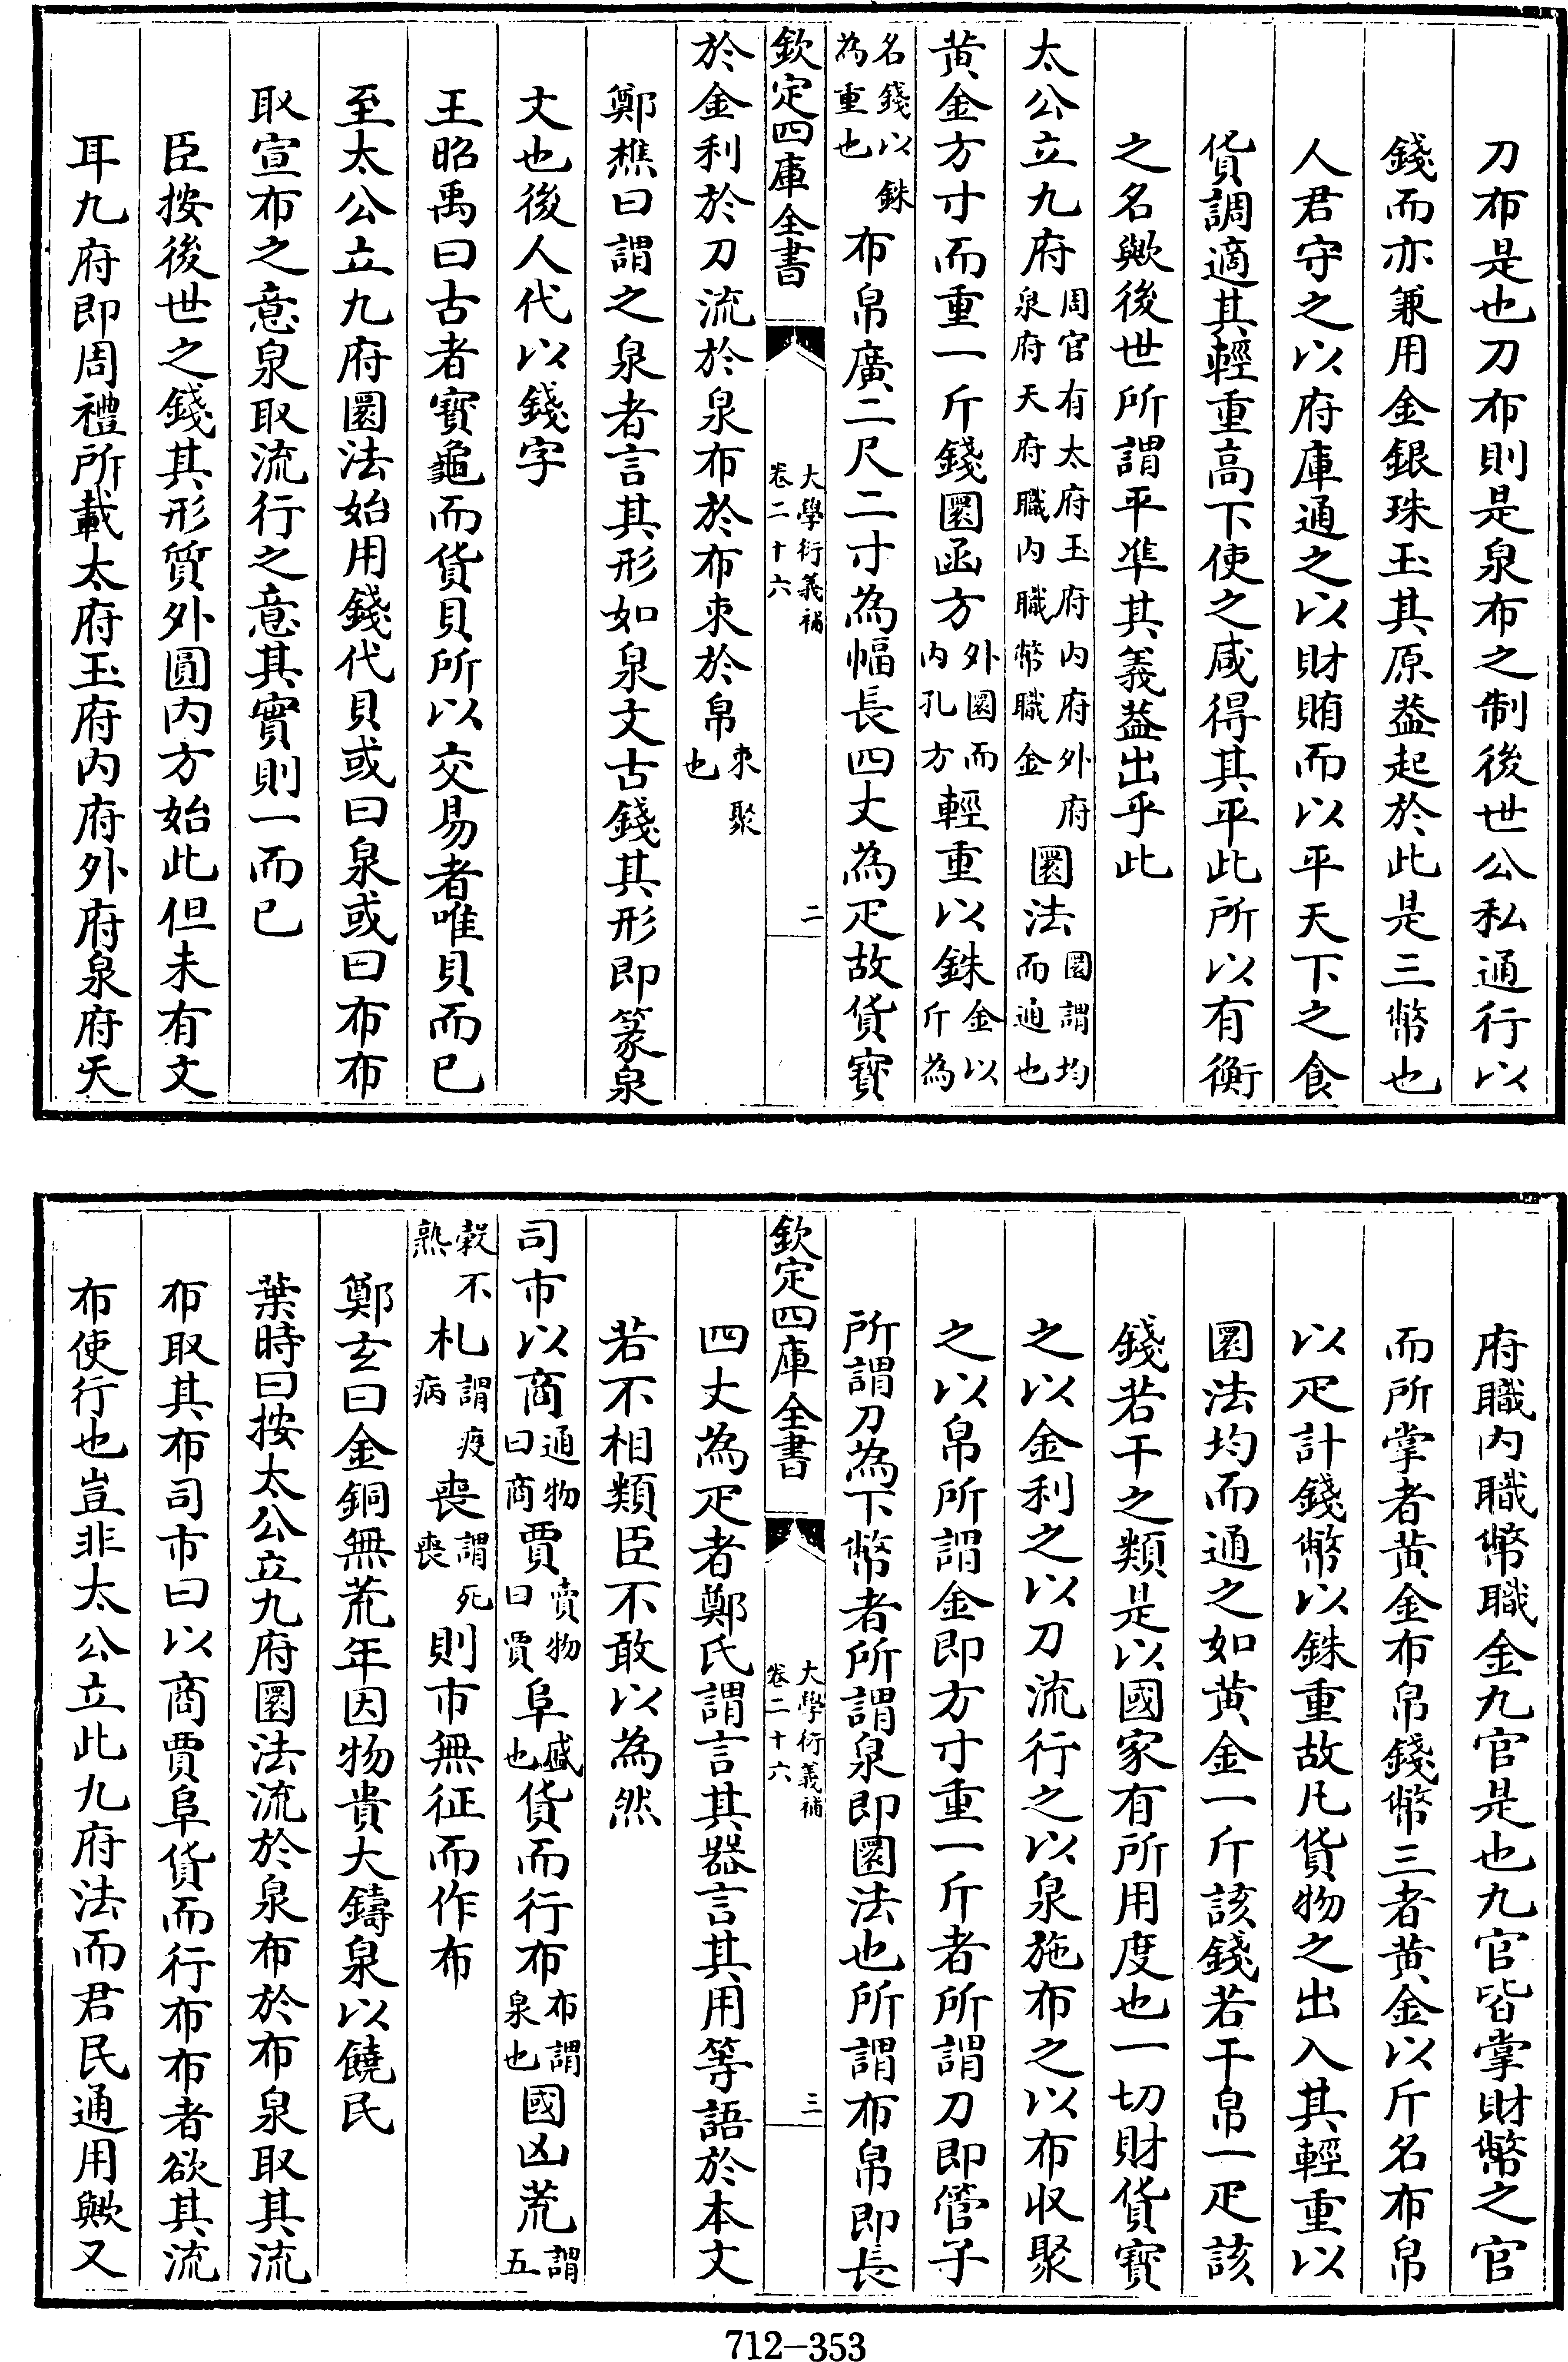 刀布是也刀布則是泉布之制後世公私通行以
錢而亦兼用金銀珠玉其原葢起於此是三幣也
人君守之以府庫通之以財賄而以平天下之食
貨調適其輕重高下使之咸得其平此所以有衡
之名歟後世所謂平凖其義葢出乎此
太公立九府周官有太府玉府内府外府泉府天府職内職幣職金圜法圜謂均而通也
黄金方寸而重一斤錢圜函方外圜而内孔方輕重以銖金以斤為
名錢以銖為重也布帛廣二尺二寸為幅長四丈為疋故貨寳
欽定四庫全書 大學衍義補 卷二十六 二
於金利於刀流於泉布於布朿於帛朿聚也
鄭樵曰謂之泉者言其形如泉文古錢其形即篆泉
文也後人代以錢字
王昭禹曰古者寳龜而貨貝所以交易者唯貝而已
至太公立九府圜法始用錢代貝或曰泉或曰布布
取宣布之意泉取流行之意其實則一而已
臣按後世之錢其形質外圓内方始此但未有文
耳九府即周禮所載太府玉府内府外府泉府天
府職内職幣職金九官是也九官皆掌財幣之官
而所掌者黄金布帛錢幣三者黄金以斤名布帛
以疋計錢幣以銖重故凡貨物之出入其輕重以
圜法均而通之如黄金一斤該錢若干帛一疋該
錢若干之類是以國家有所用度也一切財貨寳
之以金利之以刀流行之以泉施布之以布收聚
之以帛所謂金即方寸重一斤者所謂刀即管子
所謂刀為下幣者所謂泉即圜法也所謂布帛即長
欽定四庫全書 大學衍義補 卷二十六 三
四丈為疋者鄭氏謂言其器言其用等語於本文
若不相類臣不敢以為然
司市以商通物曰商賈賣物曰賈阜盛也貨而行布布謂泉也國凶荒謂五
榖不熟札謂疫病喪謂死喪則市無征而作布
鄭玄曰金銅無荒年因物貴大鑄泉以饒民
葉時曰按太公立九府圜法流於泉布於布泉取其流
布取其布司市曰以商賈阜貨而行布布者欲其流
布使行也豈非太公立此九府法而君民通用歟又
712-353